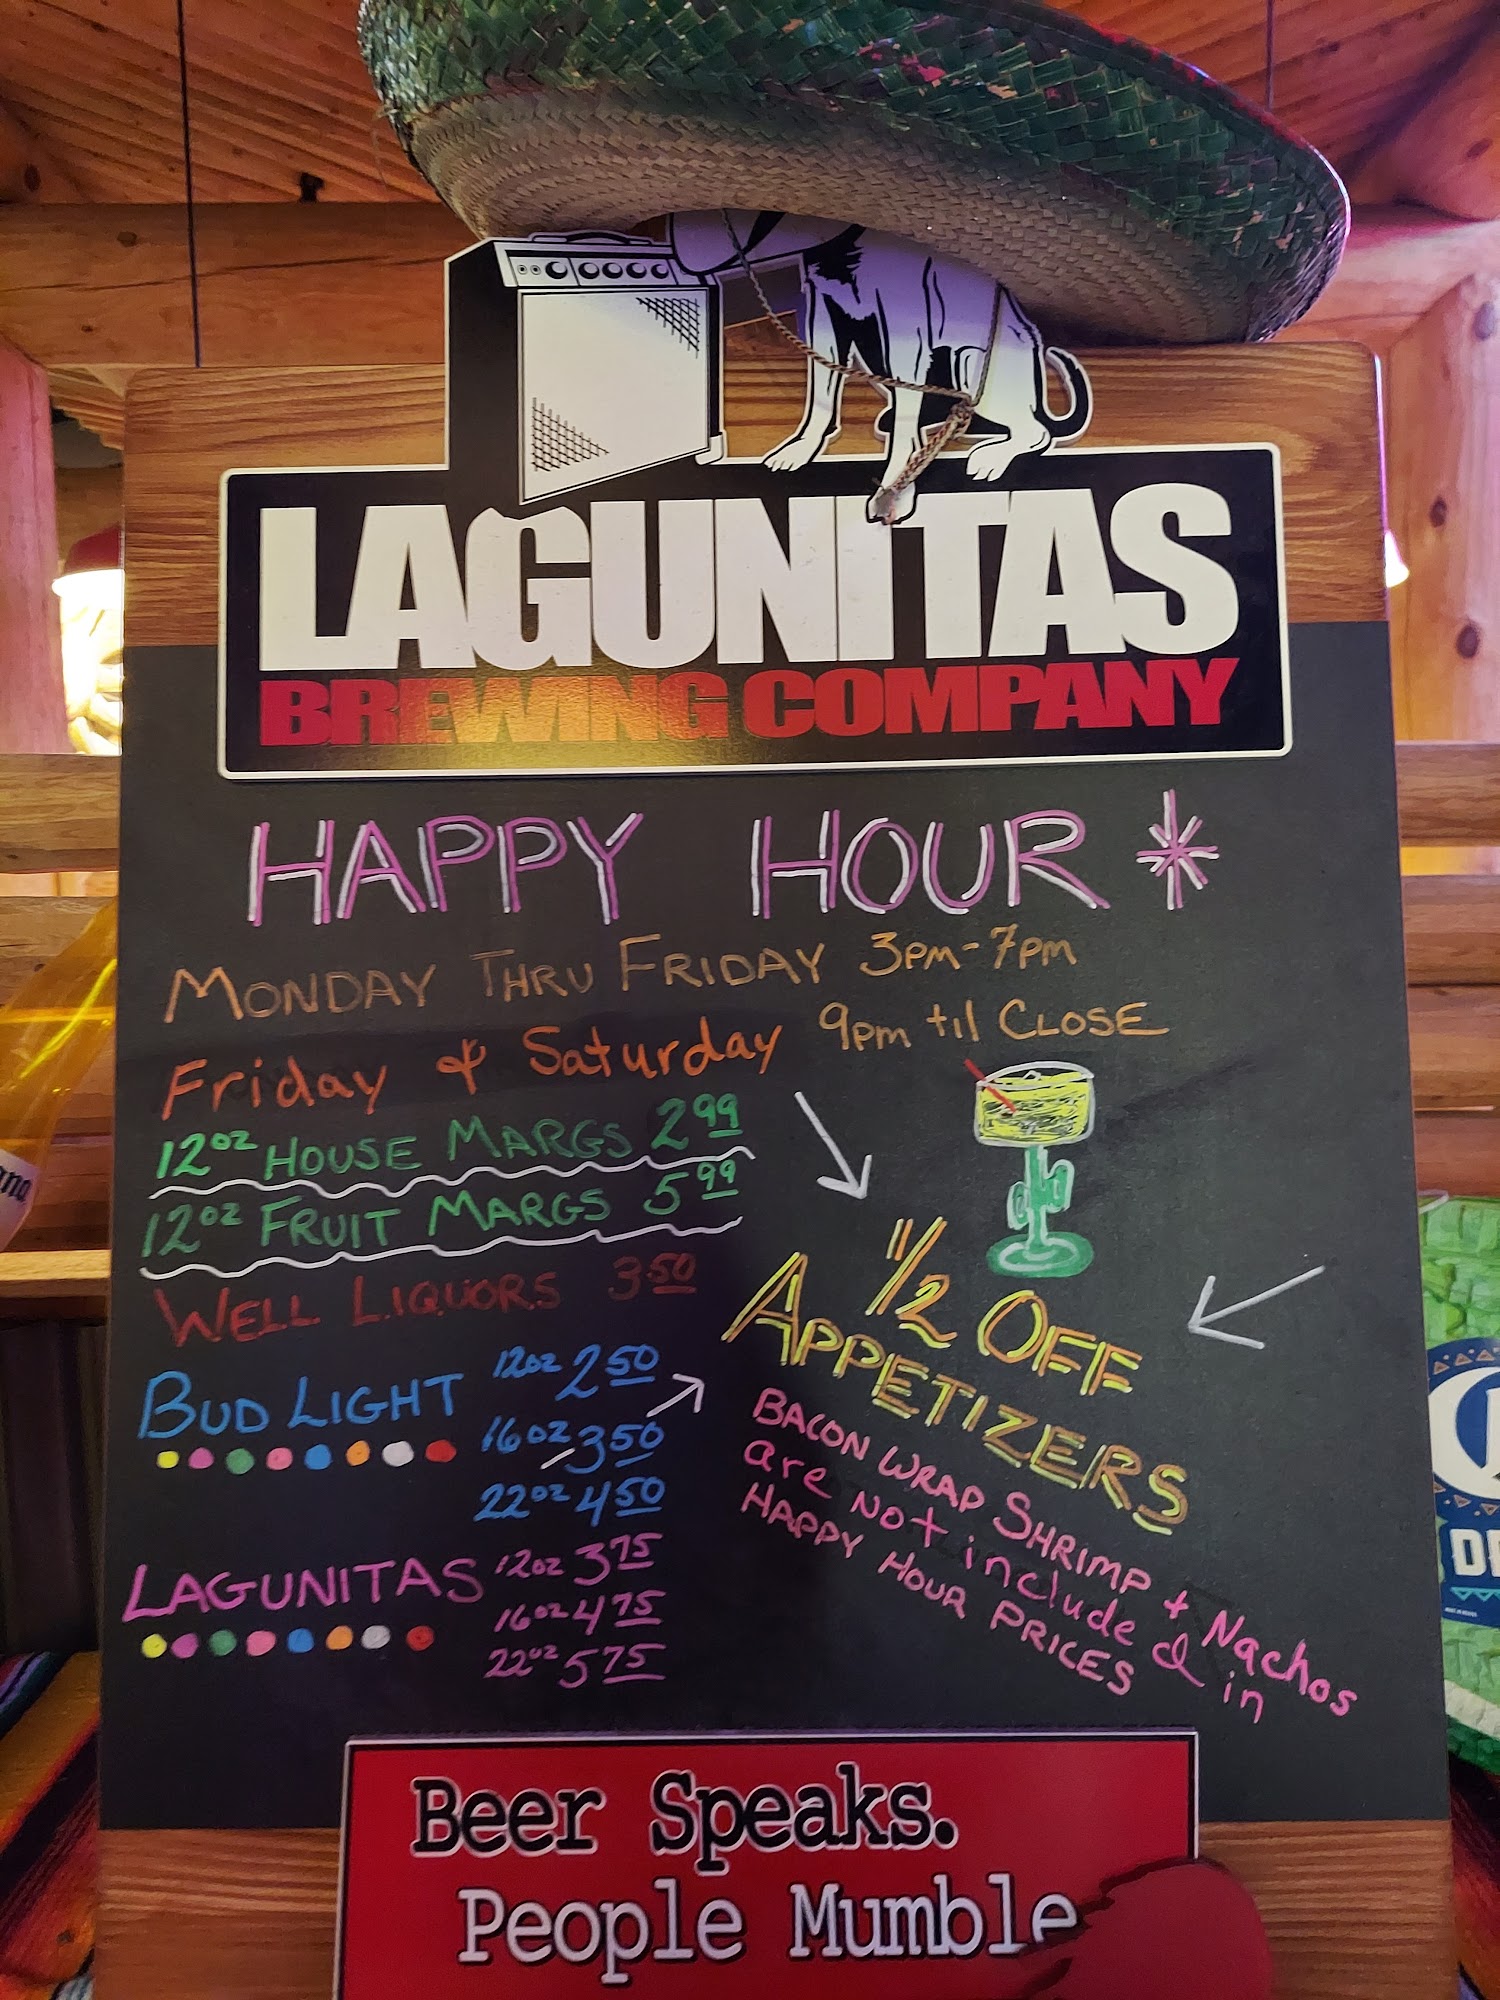 LAGUNITAS
BREWING COMPANY
HAPPY HOUR *
MONDAY THRU FRIDAY 3PM-7PM
Friday & Saturday 9pm til CLOSE
12oz HOUSE MARGS 2.99
12oz FRUIT MARGS 5.99
WELL LIQUORS 3.50
BUD LIGHT 12oz 2.50
16oz 3.50
22oz 4.50
LAGUNITAS 12oz 3.75
16oz 4.75
22oz 5.75
1/2 OFF
APPETIZERS
BACON WRAP SHRIMP + Nachos
are not include d in
HAPPY HOUR PRICES
Beer Speaks.
People Mumble